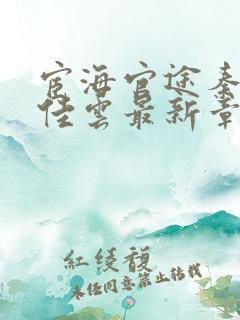 宦海官途秦
佳雲最新章
紅綾馥
未任同意禁止转载